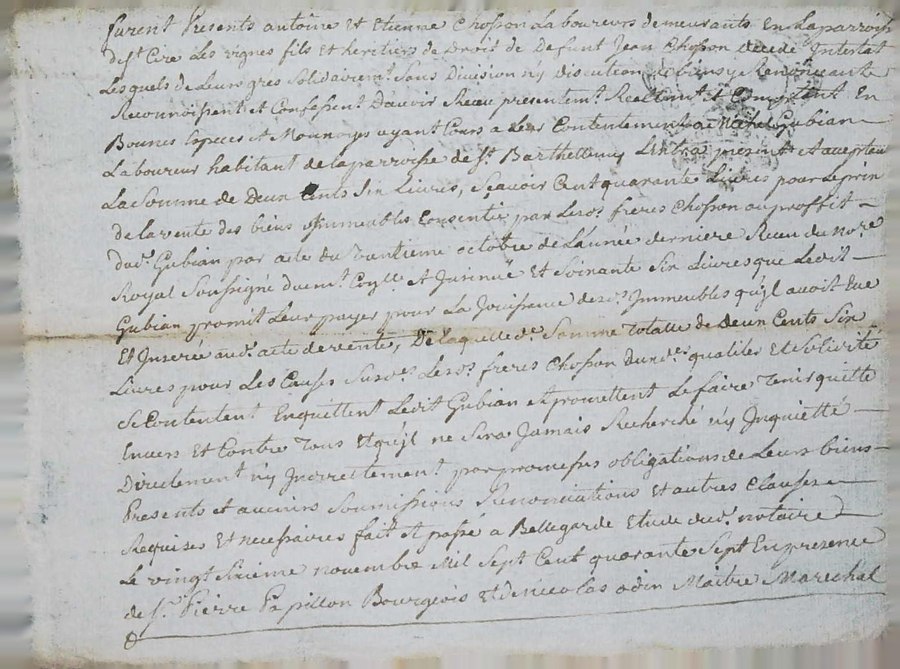 furent Presents antoine Et Etienne Chosson Laboureurs demeurants En Laparroisse
de St. Cire Les vignes fils Et heritiers de Droit de Defunt Jean Chosson decedé Intestat
Lesquels de Leurs gres Solidairemt. Sans Division n'y discution Renonçants
Reconnoissent et Confessent Davoir Receu presentemt. Reellemt. & Comptant En
Bonnes Especes et Monnoyes ayant Cours a Leur Contentement de Michel Gubian
Laboureur habitant de la parroisse de St. Barthellemy Lestra present Et acceptant
La Somme de Deux Cents Six Livres, Sçavoir Cent quarante Livres pour Le prix
de la vente des biens Immeubles Consentie par Lesds. freres Chosson au proffit
dud. Gubian par acte du vantieme octobre de L'année derniere Receu du nore.
Royal Soussigné duemt. Conllé Et Insinué Et Soixante Six Livres que Ledit
Gubian promit Leur payer pour La Jouissance desds. Immeubles qu'jl avoit Eue
Et Inserée aud. acte de vente, De laquelle de. Somme Totalle de Deux Cents Six
Livres pour Les Causes Susdes. Lesds. freres Chosson Auxdes. qualites Et Solidité
Se Contentent Enquittent Ledit Gubian Et promettent Le faire Tenir quitte
Envers Et Contre Tous Et qu'jl ne Sera Jamais Recherché n'y Inquietté
Directement n'y Indirectement par promesses obligations de Leurs biens
Presents et avenirs Soumissions Renonciations Et autres Clauses
Requises Et necessaires fait Et passé a Bellegarde Etude dud. notaire
Le vingt Sixieme novembre Mil Sept Cent quarante Sept En presence
de Sr. Pierre Papillon Bourgeois Et de nicolas odin Maitre Marechal